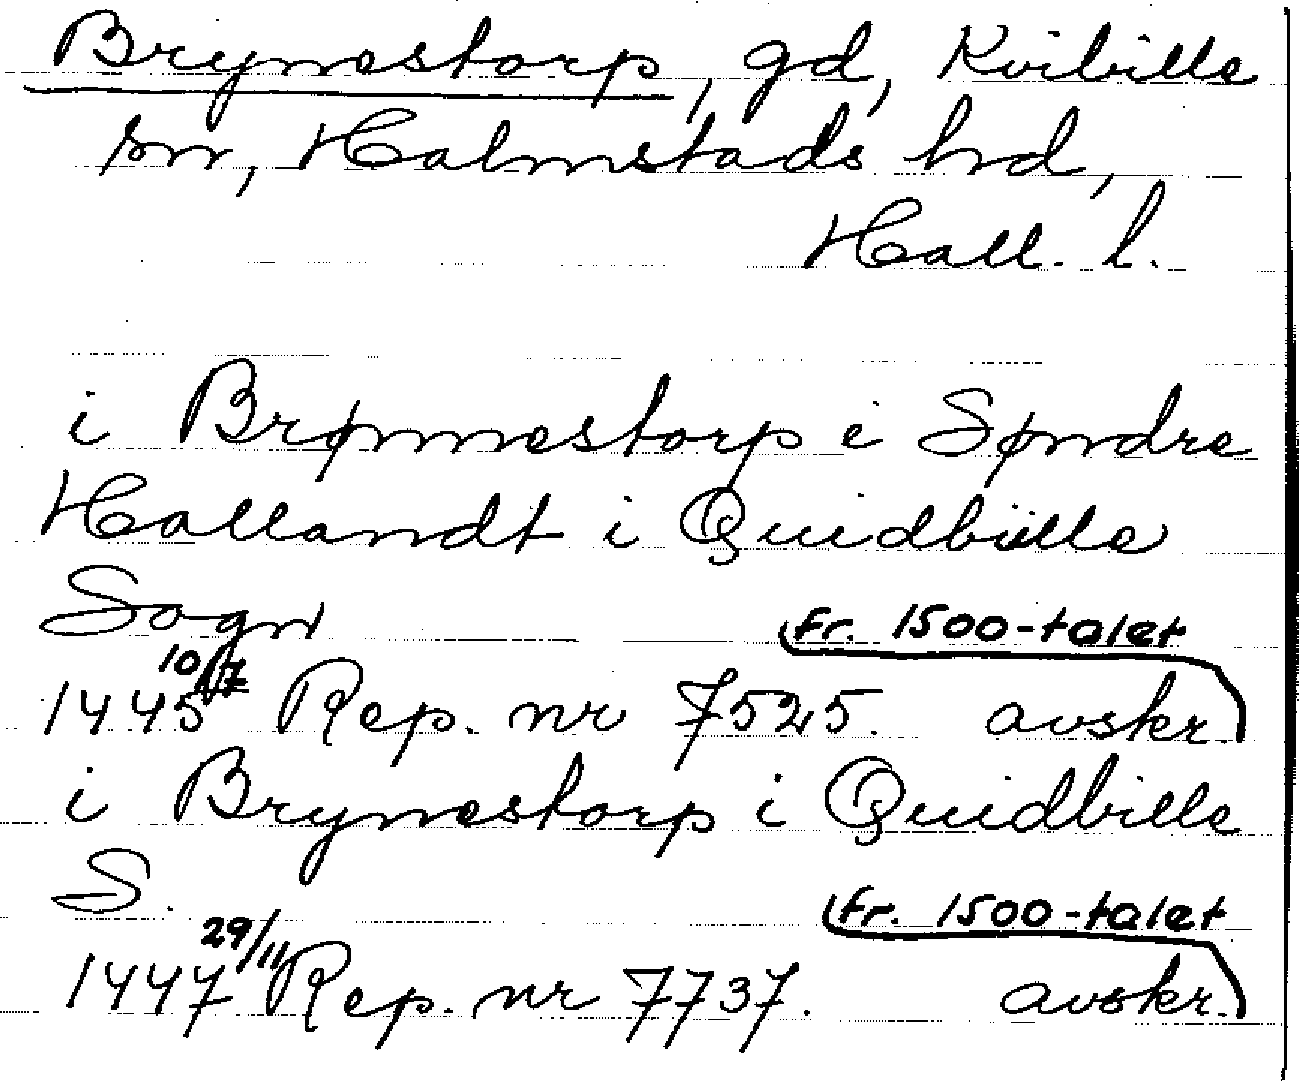 Brynestorp, gd, Kvibille
sn, Halmstads hd,
Hall. l.
i Brønnestorp i Søndre
Hallandt i Quidbülle
Sogn
fr. 1500-talet
1445 10/7 Rep. nr 7525. avskr.
i Brynestorp i Quidbille
S.
fr. 1500-talet
1447 29/11 Rep. nr 7737. avskr.